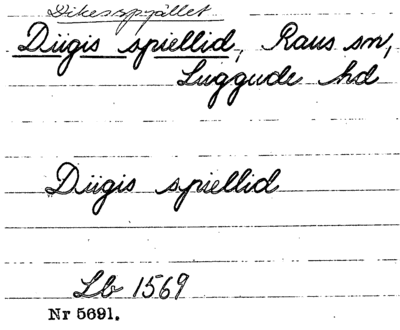 Dikesspjället
Diigis spiellid, Raus sn,
Luggude hd
Diigis spiellid
Lb 1569
Nr 5691.